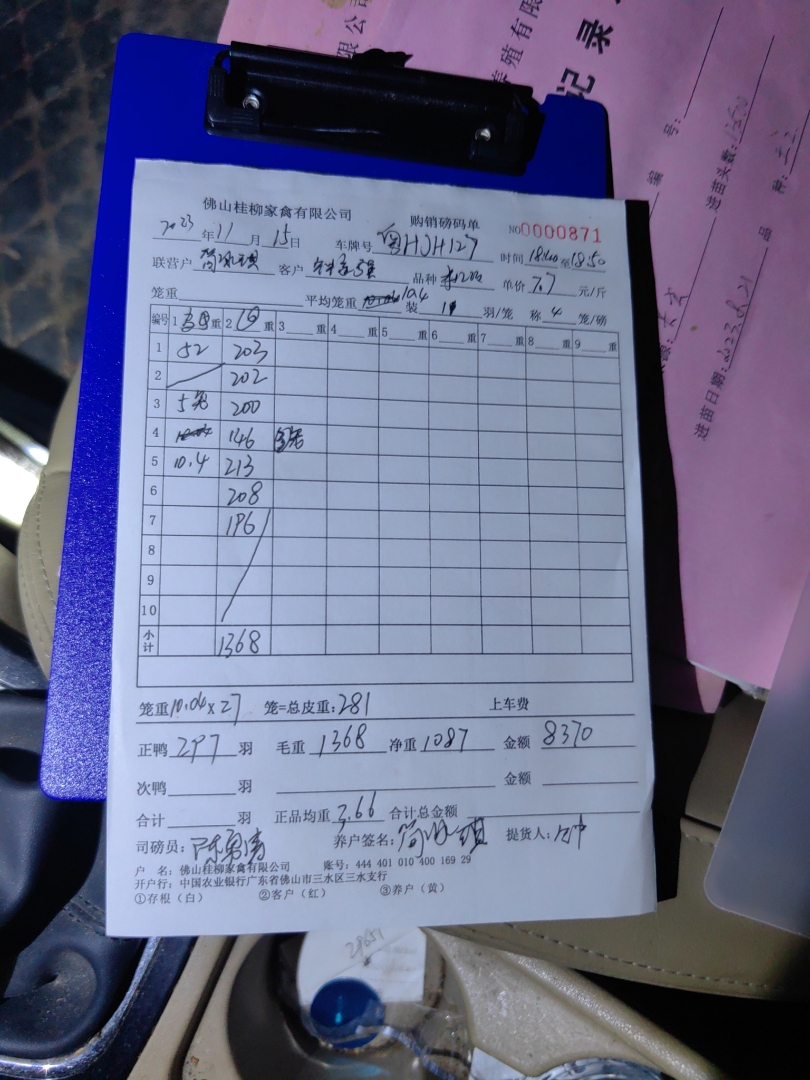 限公司
养殖有限
记录
编号:
进苗羽数:
品种:
进苗日期: 2023.8.21
佛山桂柳家禽有限公司 购销磅码单 NO0000871
2023年11月15日 车牌号 粤HJH127 时间 18:40至18:50
联营户 客户 品种 单价 7.7 元/斤
笼重 平均笼重 10.4 装 11 羽/笼 称 4 笼/磅
编号 1 重 2 重 3 重 4 重 5 重 6 重 7 重 8 重 9 重
1 52 203
2 202
3 5笼 200
4 146
5 10.4 213
6 208
7 196
8
9
10
小计 1368
笼重10.04×27 笼=总皮重:281 上车费
正鸭 297 羽 毛重 1368 净重 1087 金额 8370
次鸭 羽 金额
合计 羽 正品均重 3.66 合计总金额
司磅员: 养户签名: 提货人:
户 名:佛山桂柳家禽有限公司 账号:444 401 010 400 169 29
开户行:中国农业银行广东省佛山市三水区三水支行
①存根(白) ②客户(红) ③养户(黄)